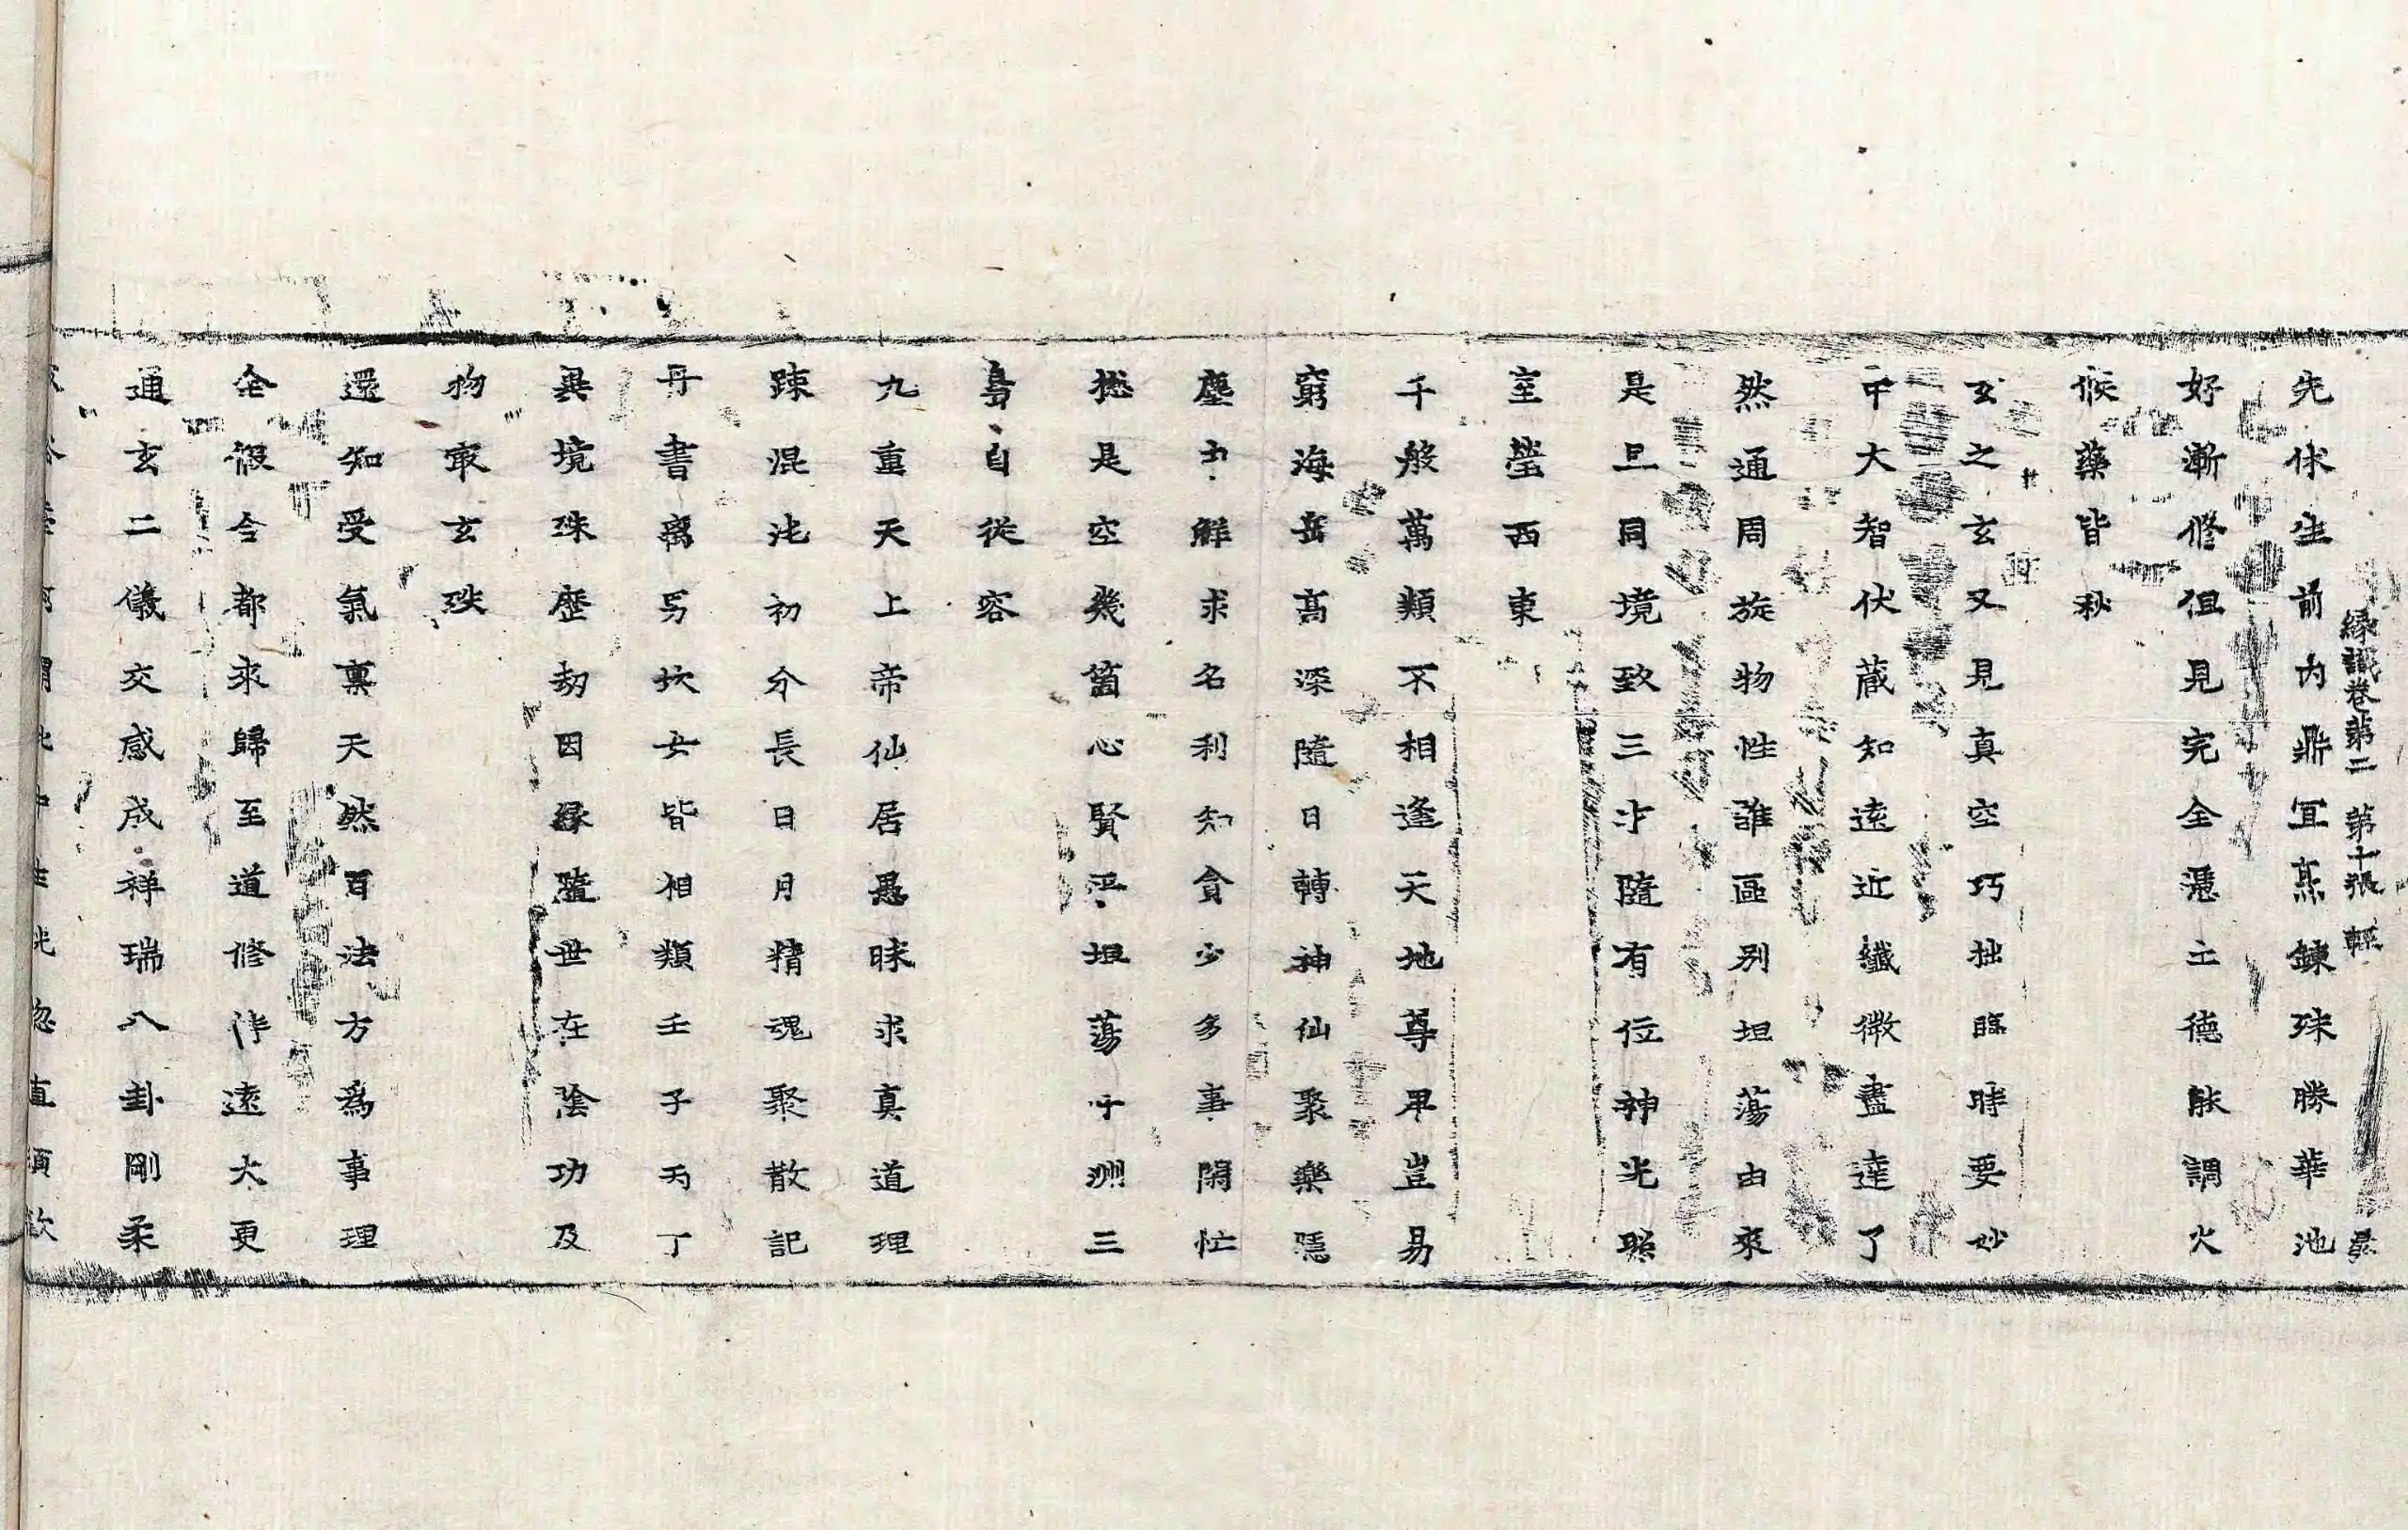 緣識卷第二 第十張 輕
先休生前內鼎宜蒸鍊殊勝華池
好漸修但見完全憑土德能調火
候藥皆秋
玄之玄又見真空巧拙臨時要妙
中大智伏藏知遠近纖微盡達了
然通周旋物性誰區別坦蕩由來
是旦同境致三才隨有位神光照
室瑩西東
千般萬類不相逢天地尊卑豈易
窮海岳高深隨日轉神仙聚樂隱
塵中鮮求名利知貪少多事閑忙
揔是空幾箇心賢平坦蕩十洲三
島自從容
九重天上帝仙居愚昧求真道理
踈混沌初分長日月精魂聚散記
丹書离男坎女皆相類壬子丙丁
異境殊歷劫因緣隨世在陰功及
物最玄殊
還知受氣稟天然百法方為事理
全假合都來歸至道修作遠大更
通玄二儀交感成祥瑞八卦剛柔